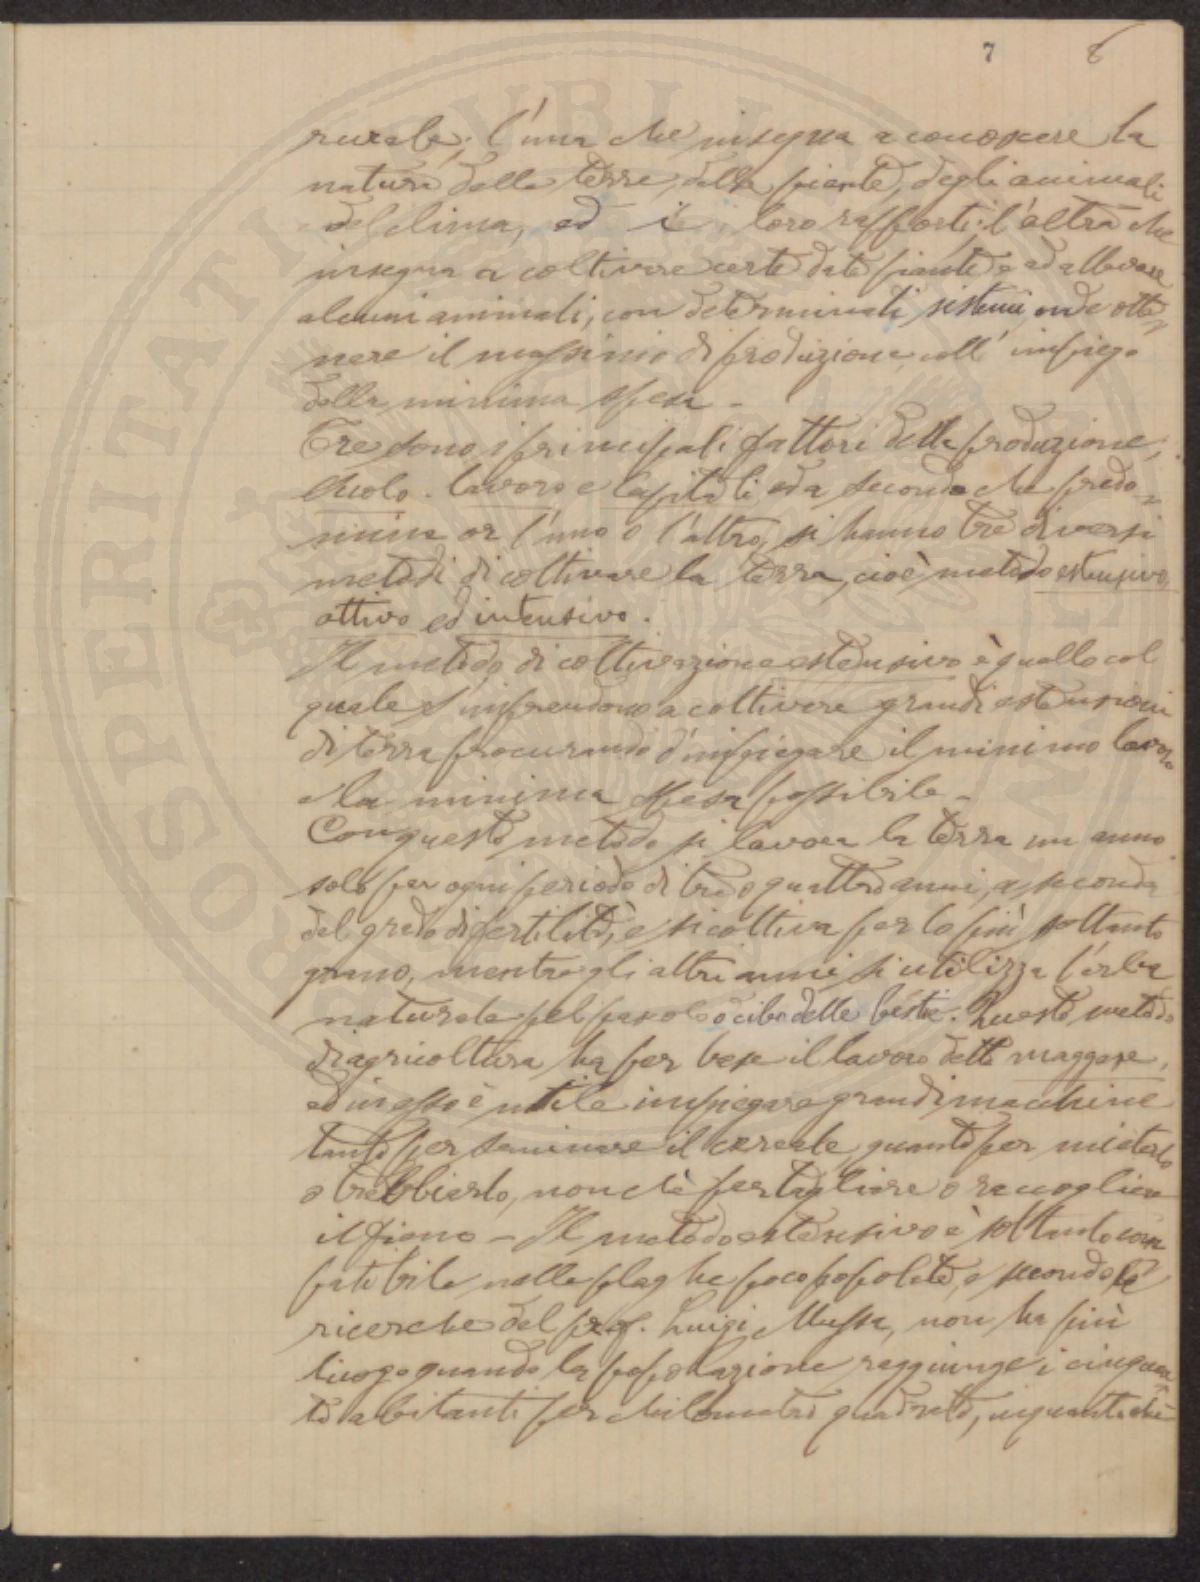 7 8
rurale; l'una che insegna a conoscere la
natura delle terre, delle piante, degli animali
del clima, ed i loro rapporti; l'altra che
insegna a coltivare certe date piante e ad allevare
alcuni animali, con determinati sistemi, onde otte=
nere il massimo di produzione coll' impiego
della minima spesa -
Tre sono i principali fattori della produzione,
suolo - lavoro e capitali ed a seconda che predo=
mina or l'uno o l'altro, si hanno tre diversi
metodi di coltivare la terra, cioè metodo estensivo,
attivo ed intensivo.
Il metodo di coltivazione estensivo è quello col
quale s'imprendono a coltivare grandi estensioni
di terra procurando d'impiegare il minimo lavoro
e la minima spesa possibile -
Con questo metodo si lavora la terra un anno
solo per ogni periodo di tre o quattro anni, a seconda
del grado di fertilità, e si coltiva per lo più soltanto
grano, mentre gli altri anni si utilizza l'erba
naturale pel pascolo o cibo delle bestie. Questo metodo
di agricoltura ha per base il lavoro detto maggese,
ed in esso è utile impiegare grandi macchine
tanto per seminare il cereale quanto per mieterlo
o trebbiarlo, non chè per tagliare o raccogliere
il fieno - Il metodo estensivo è soltanto com=
patibile nelle plaghe poco popolate, e secondo le
ricerche del prof. Luigi Mussa, non ha più
luogo quando la popolazione raggiunge i cinquan=
ta abitanti per chilometro quadrato, inquantochè
PROSPERITATI PUBLICAE